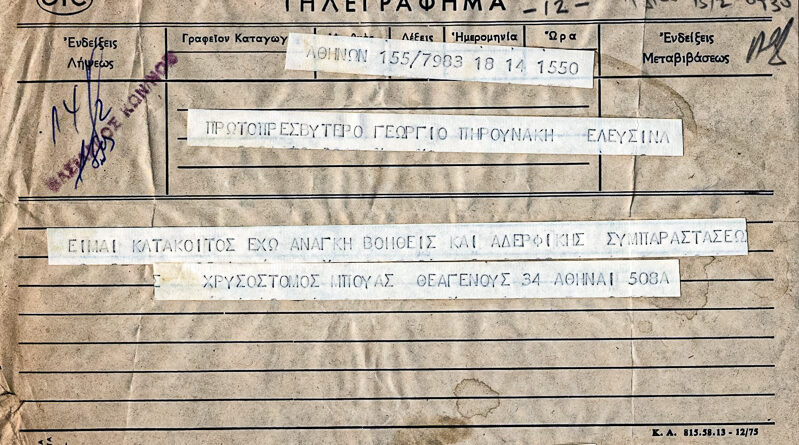 ΟΤΕ
ΤΗΛΕΓΡΑΦΗΜΑ -12- 15/2 0930
Ἐνδείξεις Λήψεως
Γραφεῖον Καταγωγ Λέξεις Ἡμερομηνία Ὥρα
Ἐνδείξεις Μεταβιβάσεως
ΑΘΗΝΩΝ 155/7983 18 14 1550
14/2
ΠΡΩΤΟΠΡΕΣΒΥΤΕΡΟ ΓΕΩΡΓΙΟ ΠΗΡΟΥΝΑΚΗ ΕΛΕΥΣΙΝΑ
ΕΙΜΑΙ ΚΑΤΑΚΟΙΤΟΣ ΕΧΩ ΑΝΑΓΚΗ ΒΟΗΘΕΙΣ ΚΑΙ ΑΔΕΡΦΙΚΗΣ ΣΥΜΠΑΡΑΣΤΑΣΕΩ
Σ ΧΡΥΣΟΣΤΟΜΟΣ ΜΠΟΥΑΣ ΘΕΑΓΕΝΟΥΣ 34 ΑΘΗΝΑΙ 508Α
Κ. Α. 815.58.13 - 12/75